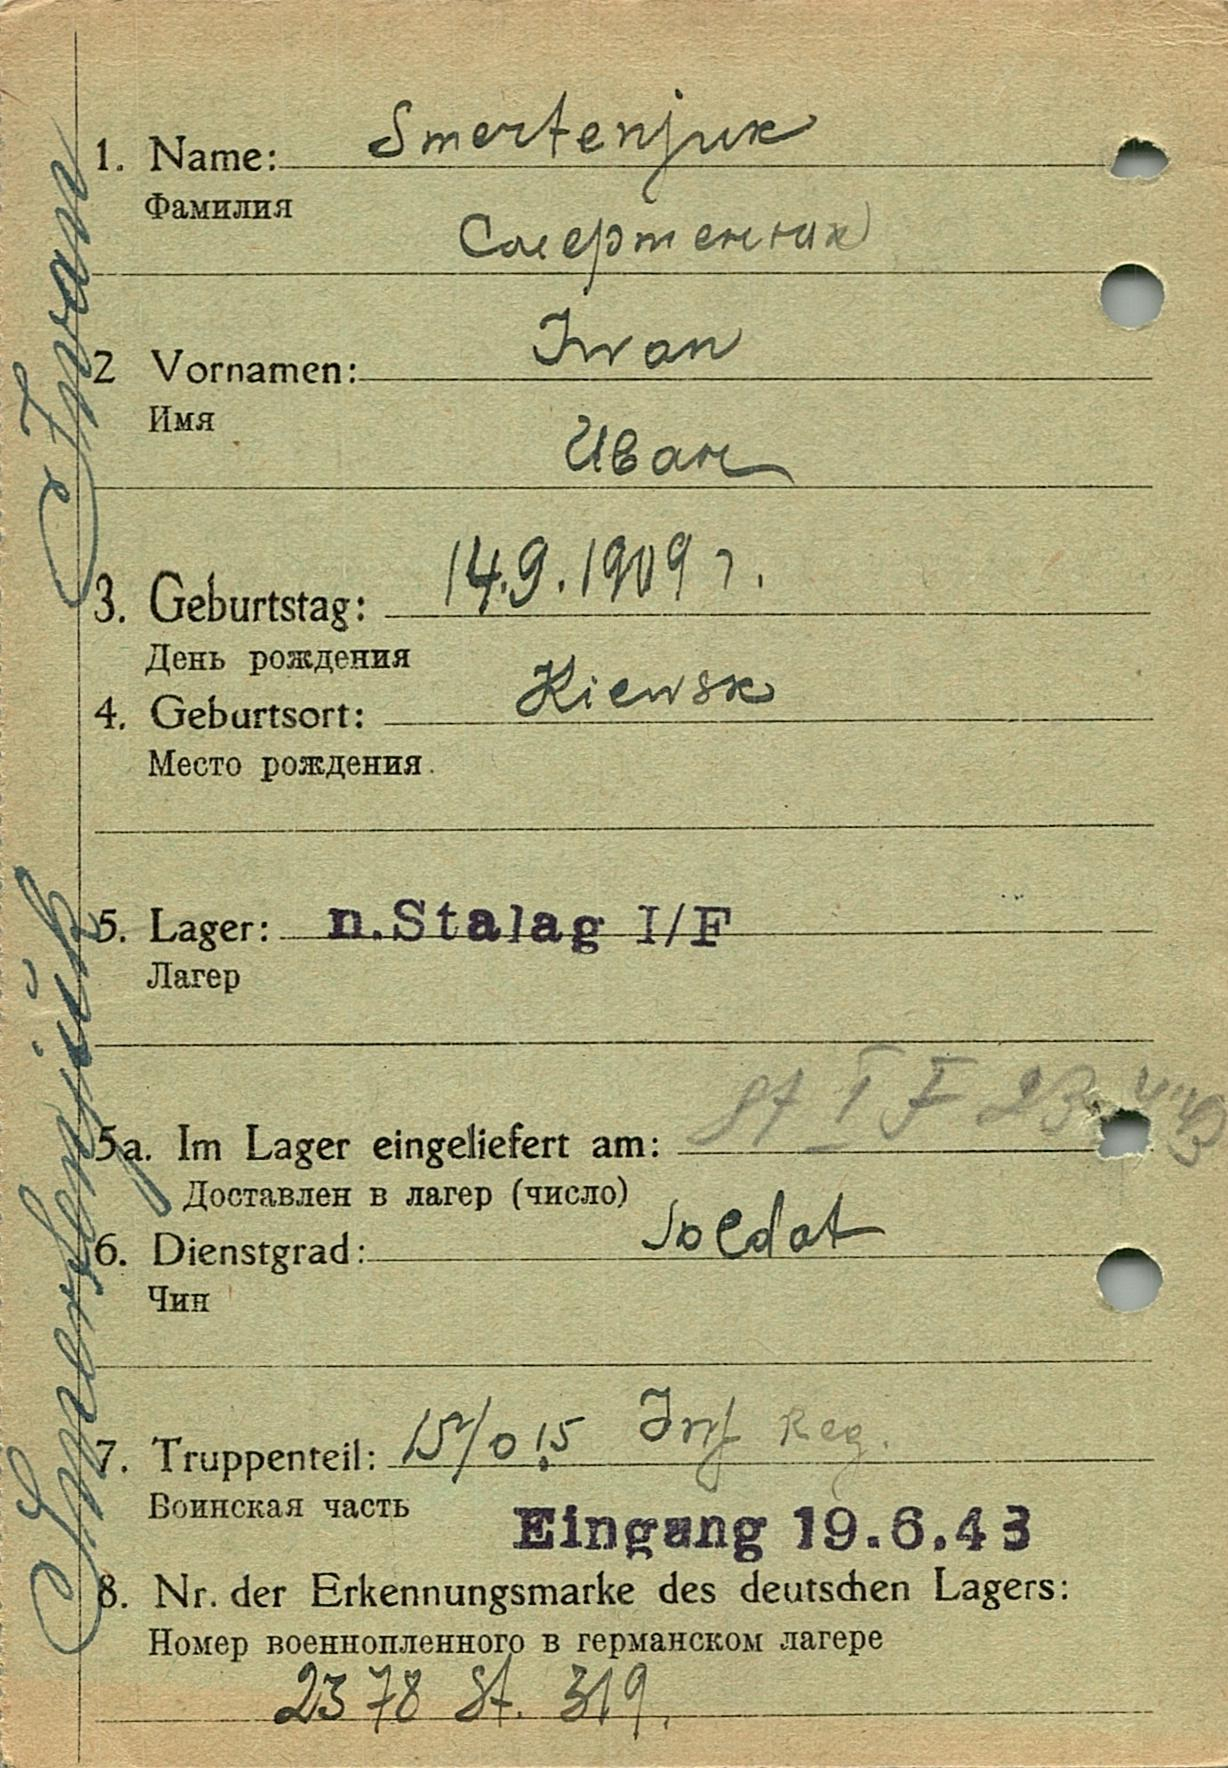 1. Name: Smertenjuk
Фамилия
Смертенник
2 Vornamen: Iwan
Имя
Иван
3. Geburtstag: 14.9.1909 г.
День рождения
4. Geburtsort: Kiewsk
Место рождения.
5. Lager: n.Stalag I/F
Лагер
St I F 23.4.43
5a. Im Lager eingeliefert am:
Доставлен в лагер (число)
6. Dienstgrad: Soldat
Чин
7. Truppenteil: 15/015 Inf Reg.
Воинская часть
Eingang 19.6.43
8. Nr. der Erkennungsmarke des deutschen Lagers:
Номер военнопленного в германском лагере
2378 St. 319.
Smertenjuk Iwan